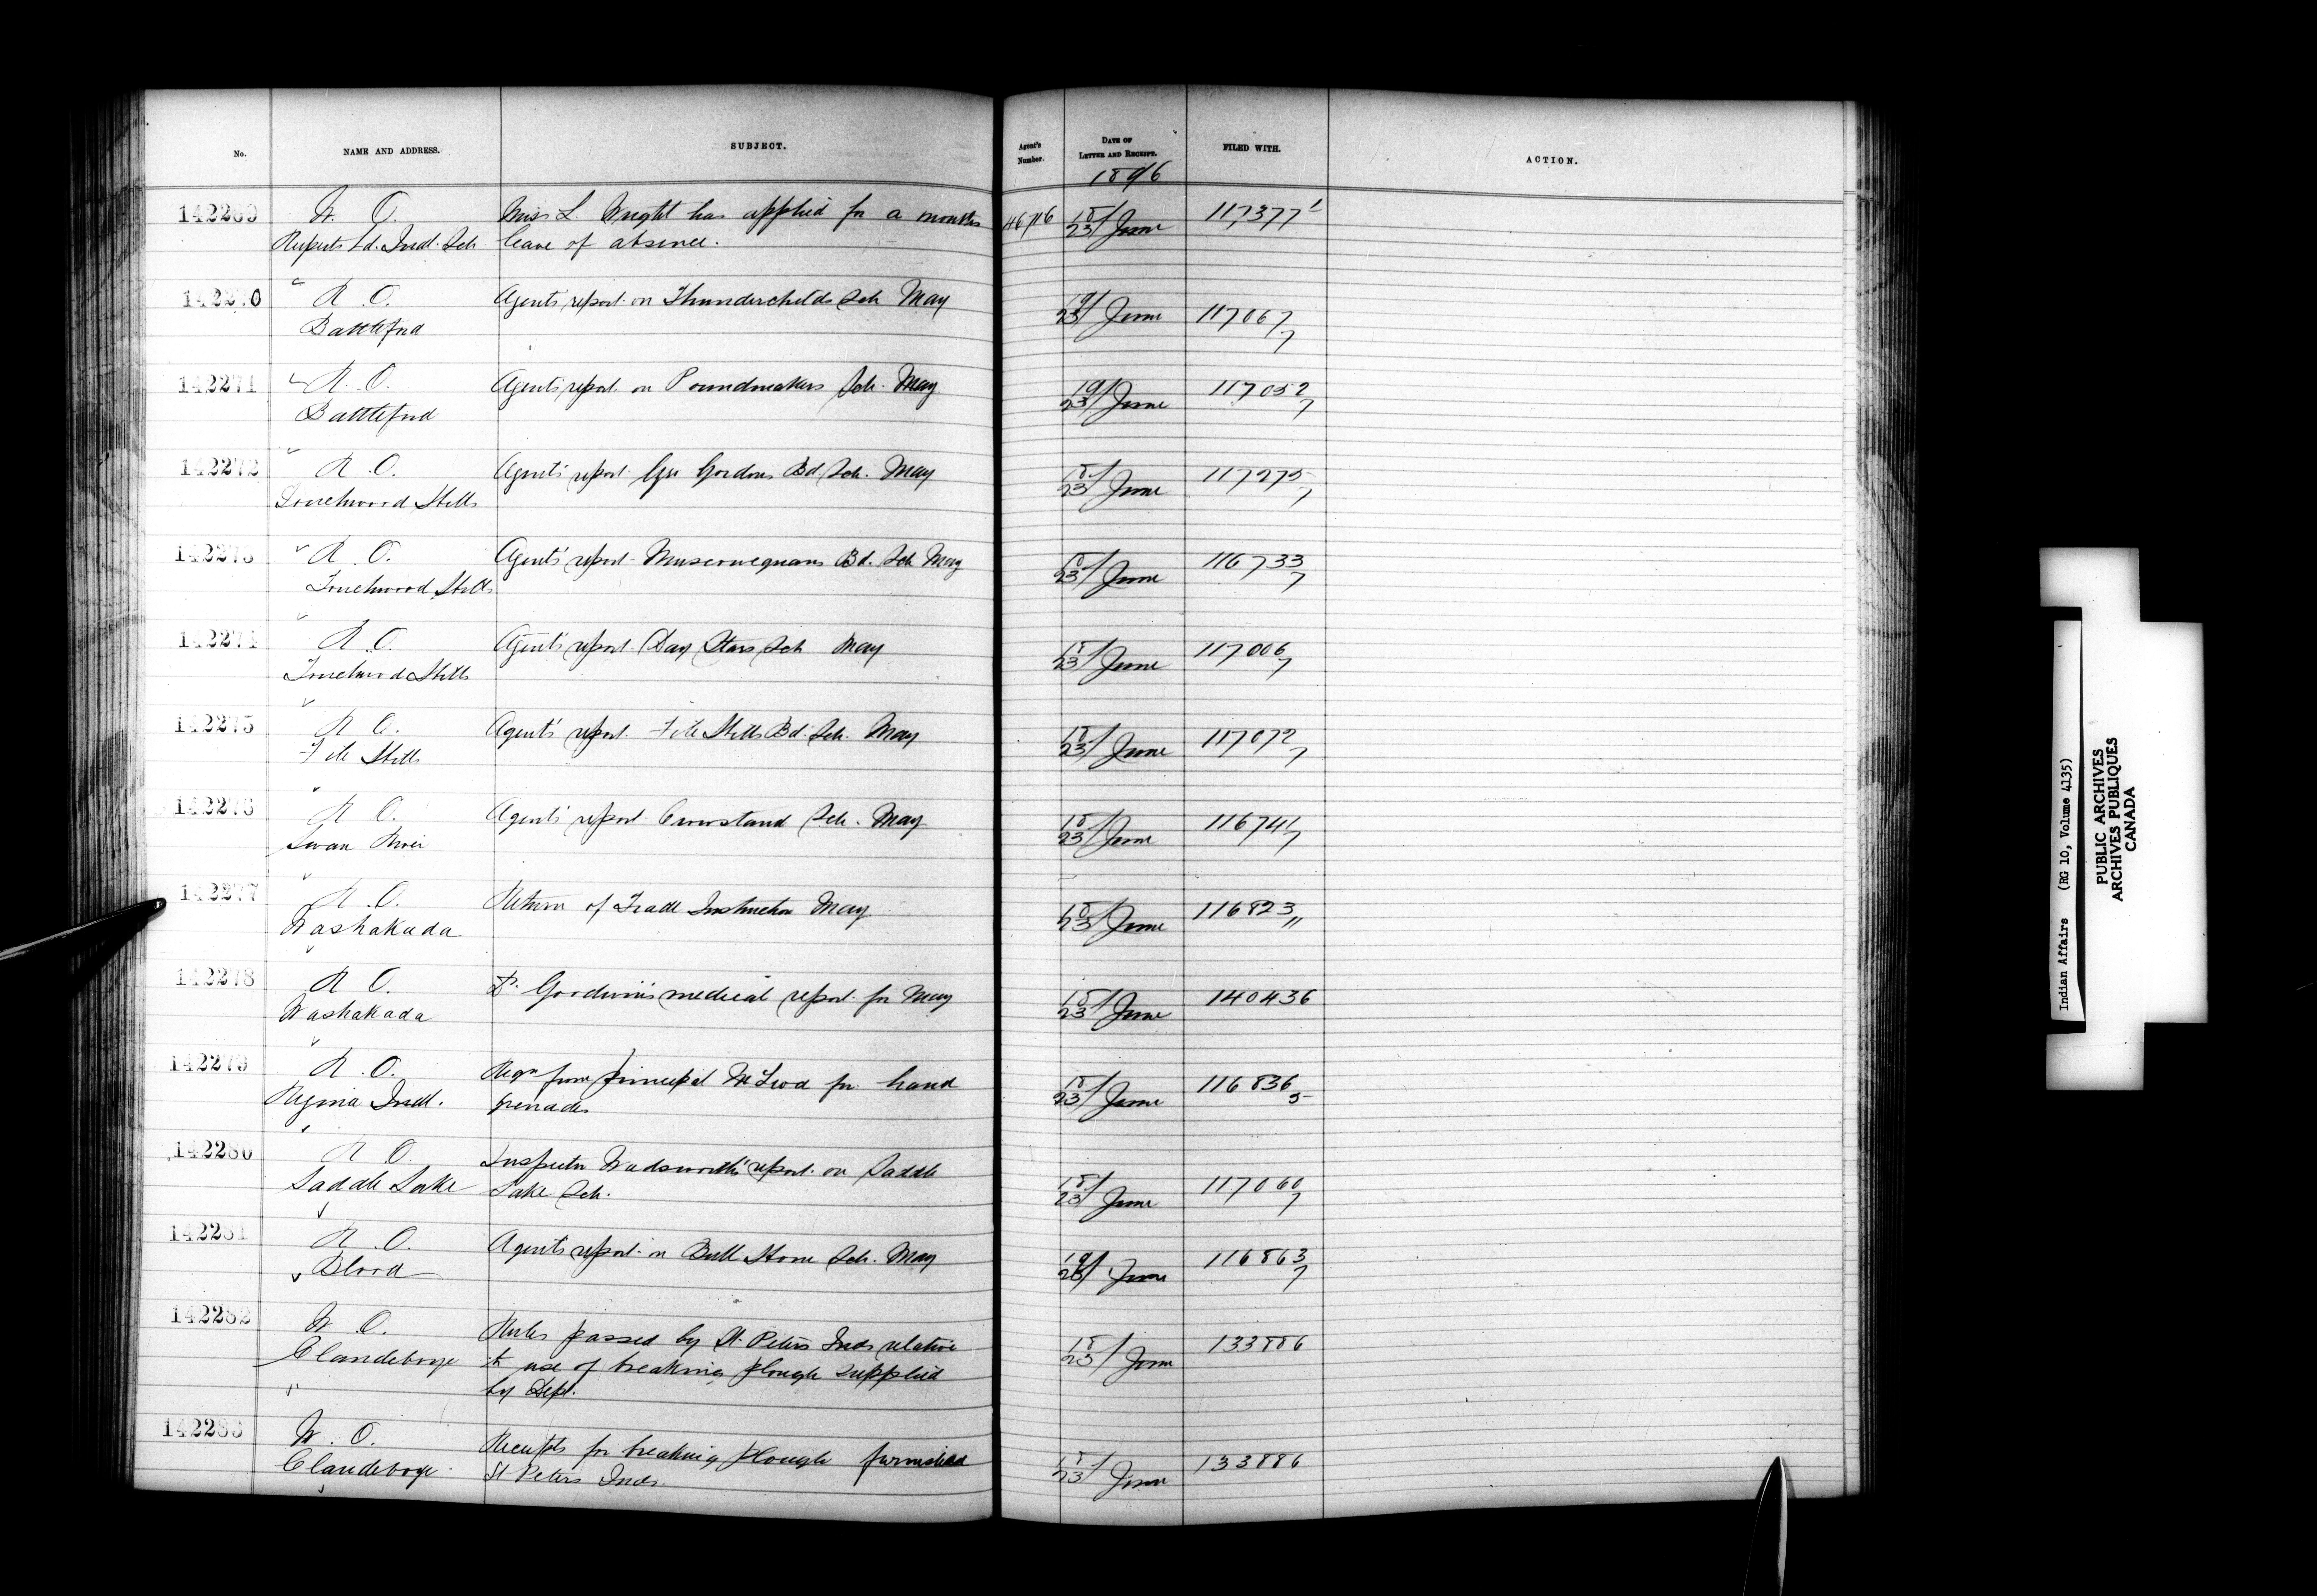 No. NAME AND ADDRESS. SUBJECT. Agent's Number. DATE OF LETTER AND RECEIPT. FILED WITH. ACTION.
1896
142269 W. O. Miss L. Wright has applied for a months 46716 18/23 June 117377 1
Ruperts Ld. Indl. Sch leave of absence.
142270 R. O. Agents report on Thunderchilds Sch May 19/23 June 117067 7
Battleford
142271 R. O. Agents report on Poundmakers Sch. May 19/23 June 117052 7
Battleford
142272 R. O. Agents' report Geo Gordons Bd Sch. May 18/23 June 117275 7
Touchwood Hills
142273 R. O. Agents' report Muscowequans Bd. Sch May 18/23 June 116733 7
Touchwood Hills
142274 R. O. Agents' report Day Stars Sch May 18/23 June 117006 7
Touchwood Hills
142275 R. O. Agents' report File Hills Bd. Sch. May 18/23 June 117072 7
File Hills
142276 R. O. Agents' report Crowstand Sch. May 18/23 June 116741 7
Swan River
142277 R. O. Return of Trade Instructor May 18/23 June 116823 11
Washakada
142278 R. O. Dr. Goodwin's medical report for May 18/23 June 140436
Washakada
142279 R. O. Reqn from Principal McLeod for hand 18/23 June 116836 5
Regina Indl. grenades
142280 R. O. Inspector Wadsworth's report on Saddle 18/23 June 117060 7
Saddle Lake Lake Sch.
142281 R. O. Agents report on Bull Horn Sch. May 19/23 June 116863 7
Blood
142282 W. O. Rules passed by St. Peters Inds relative 18/23 June 133886
Clandeboye to use of breaking plough supplied
by Dept.
142283 W. O. Receipts for breaking plough furnished 18/23 June 133886
Clandeboye St Peters Inds.
Indian Affairs (RG 10, Volume 4135)
PUBLIC ARCHIVES
ARCHIVES PUBLIQUES
CANADA